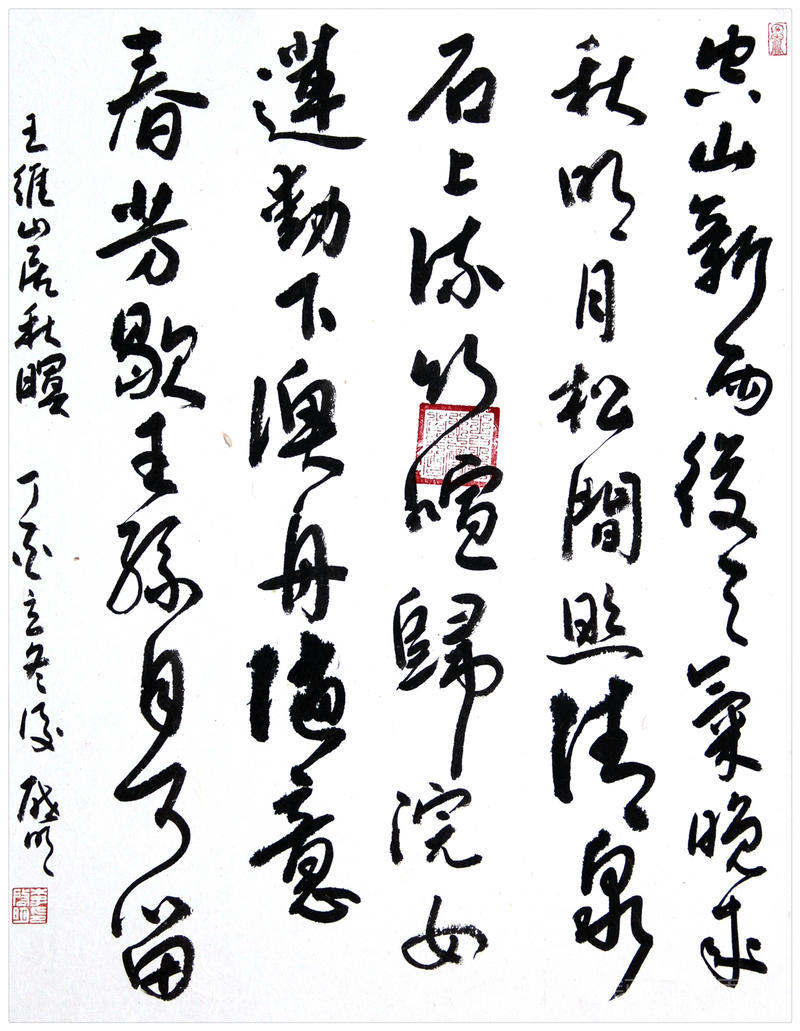 空山新雨後天氣晚来
秋明月松間照清泉
石上流竹喧歸浣女
蓮動下漁舟隨意
春芳歇王孫自可留
王維山居秋暝 丁酉立冬後 啟明